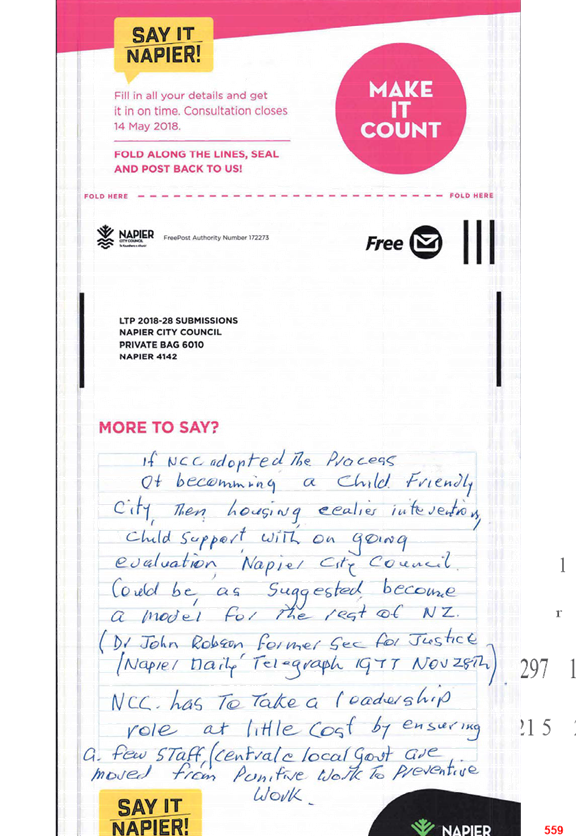 SAY IT
NAPIER!
Fill in all your details and get
it in on time. Consultation closes
14 May 2018.
FOLD ALONG THE LINES, SEAL
AND POST BACK TO US!
MAKE
IT
COUNT
FOLD HERE
FOLD HERE
NAPIER
CITY COUNCIL
FreePost Authority Number 172273
Free
LTP 2018-28 SUBMISSIONS
NAPIER CITY COUNCIL
PRIVATE BAG 6010
NAPIER 4142
MORE TO SAY?
If NCC adopted the Process
Of becomming a Child Friendly
City, Then housing eealies intervention,
Child Support with on going
evaluation, Napier City Council.
Could be, as Suggested, become
a model for the rest of NZ.
(Dr John Robson former Sec for Justice
(Napier Daily Telegraph 1977 Nov 28th)
NCC. has To Take a loadership
role at little Cost by ensuring
a few STaff, (central & local Govt are
moved from Punitive Work To Preventive
Work.
1
r
297 1
21 5
SAY IT
NAPIER!
NAPIER
559